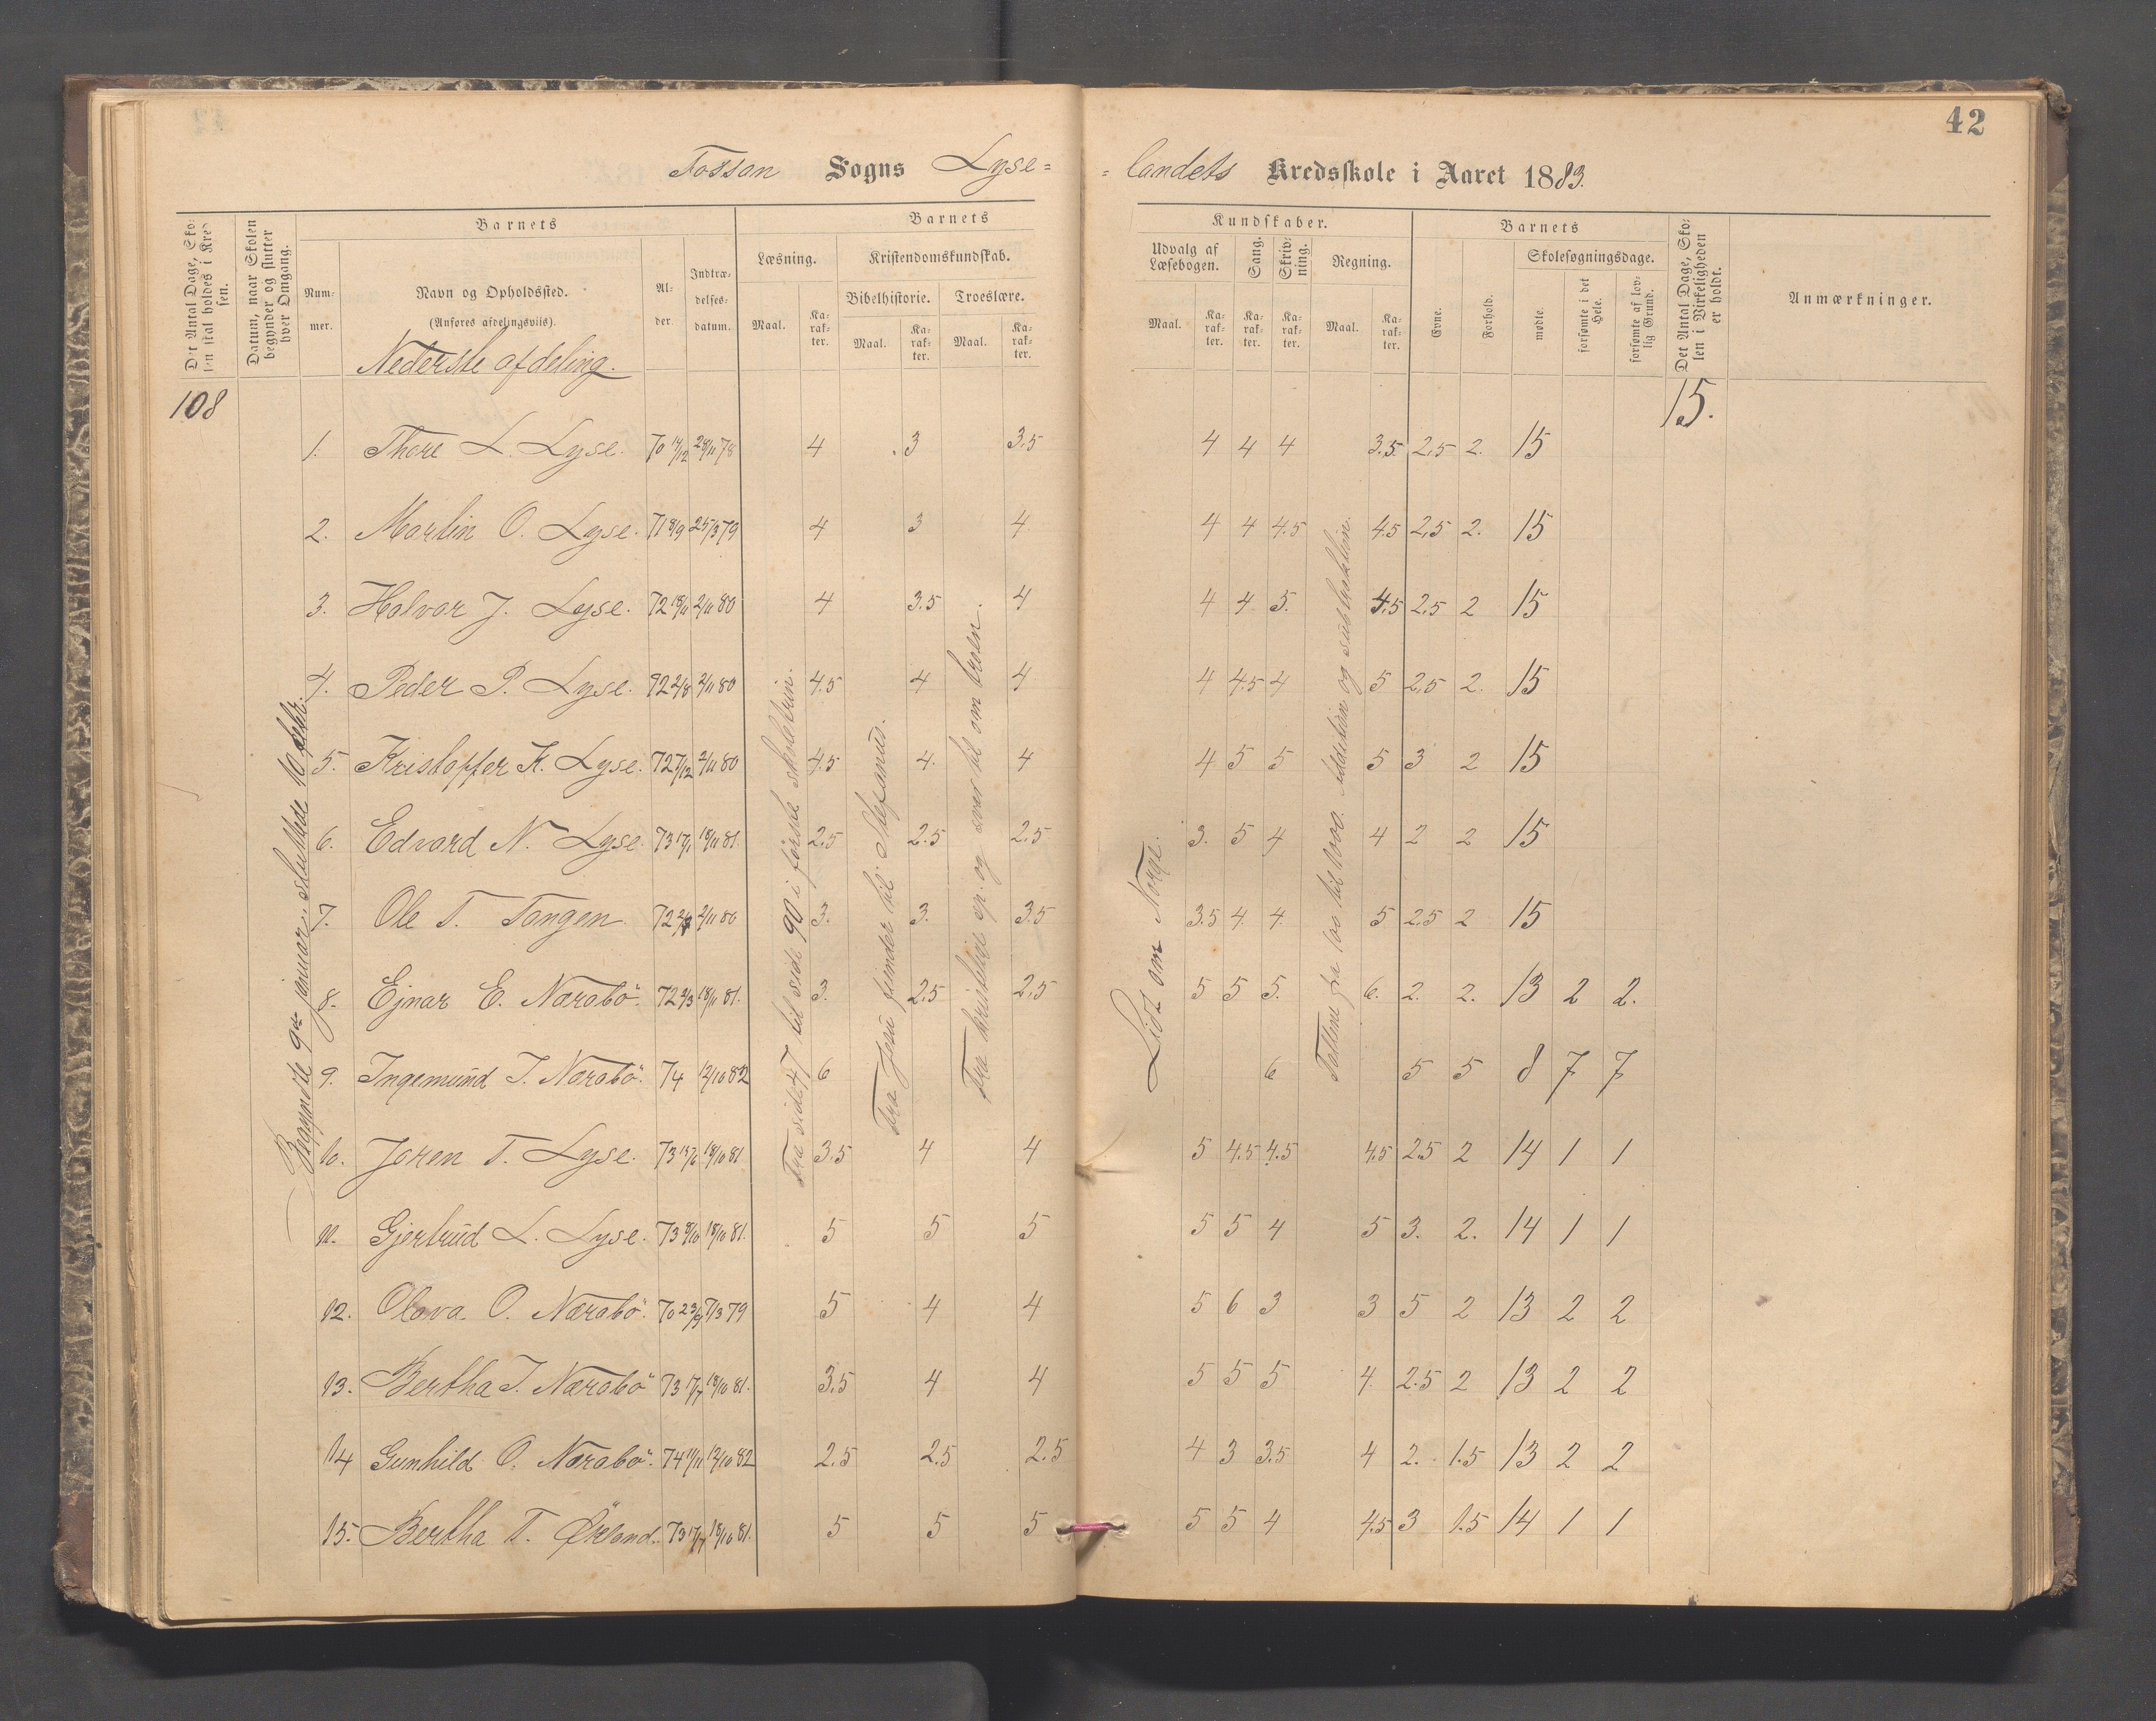 42
Fossan Sogns Lyse=
=landets Kredsskole i Aaret 1883.
Det Antal Dage, Sko-
len skal holdes i Kred-
sen.
Datum, naar Skolen
begynder og slutter
hver Omgang.
Barnets
Num-
mer.
Navn og Opholdssted.
(Anføres afdelingsvils).
Al-
der.
Indtræ-
delses-
datum.
Barnets
Læsning.
Maal.
Ka-
rak-
ter.
Kristendomskundskab.
Bibelhistorie.
Maal.
Ka-
rak-
ter.
Troeslære.
Maal.
Ka-
rak-
ter.
Kundskaber.
Udvalg af
Læsebogen.
Maal.
Ka-
rak-
ter.
Sang.
Ka-
rak-
ter.
Skriv-
ning.
Ka-
rak-
ter.
Regning.
Maal.
Ka-
rak-
ter.
Barnets
Evne.
Forhold.
Skolesøgningsdage.
mødte.
forsømte i det
Hele.
forsømte af lov-
lig Grund.
Det Antal Dage, Sko-
len i Virkeligheden
er holdt.
Anmærkninger.
Nederste afdeling.
108
15.
Begyndte 9de januar, sluttede 10 febr.
Fra side 47 til side 90 i første skoletrin.
Fra Jesu fiender til Stefanus.
Fra kristelige ep. og over til om troen.
Lidt om Norge.
Tallene fra 100 til 1000. Addition og subtraktion.
1. Thore L. Lyse. 70 28/11 78 4 3 3.5 4 4 4 3.5 2.5 2. 15
2. Martin O. Lyse. 71 8/9 25/3 79 4 3 4 4 4 4.5 4.5 2.5 2. 15
3. Halvor J. Lyse. 72 18/11 2/11 80 4 3.5 4 4 4 5. 4.5 2.5 2 15
4. Peder P. Lyse. 72 2/8 2/11 80 4.5 4 4 4 4.5 4 5 2.5 2. 15
5. Kristoffer K. Lyse. 72 7/12 2/11 80 4.5 4. 4 4 5 5 5 3 2 15
6. Edvard N. Lyse 73 17/1 18/11 81. 2.5 2.5 2.5 3. 5 4 4 2 2 15
7. Ole T. Tangen. 72 2/11 80 3. 3. 3.5 3.5 4. 4. 5 2.5 2 15
8. Ejnar E. Nærabö. 72 2/3 18/11 81. 3. 2.5 2.5 5 5 5. 6. 2. 2. 13 2 2.
9. Ingemund T. Nærabö. 74 12/10 82 6 6 5 5 8 7 7
10. Joren T. Lyse. 73 18/10 81 3.5 4 4 5 4.5 4.5 4.5 2.5 2 14 1 1
11. Gjertrud L. Lyse. 73 9/10 18/10 81. 5 5 5 5 5 4 5 3. 2. 14 1 1
12. Olava O. Nærabö. 70 23/9 7/3 79 5 4 4 5 6 3 3 5 2 13 2 2
13. Bertha J. Nærabö 73 17/7 18/10 81. 3.5 4 4 5 5 5 4. 2.5 2 13 2 2
14 Gunhild O. Nærabö. 74 11/11 12/10 82 2.5 2.5 2.5 4 3 3.5 4 2. 1.5 13 2 2
15. Bertha T. Økland. 73 17/7 18/10 81. 5 5 5 5 5 4 4.5 3 1.5 14 1 1